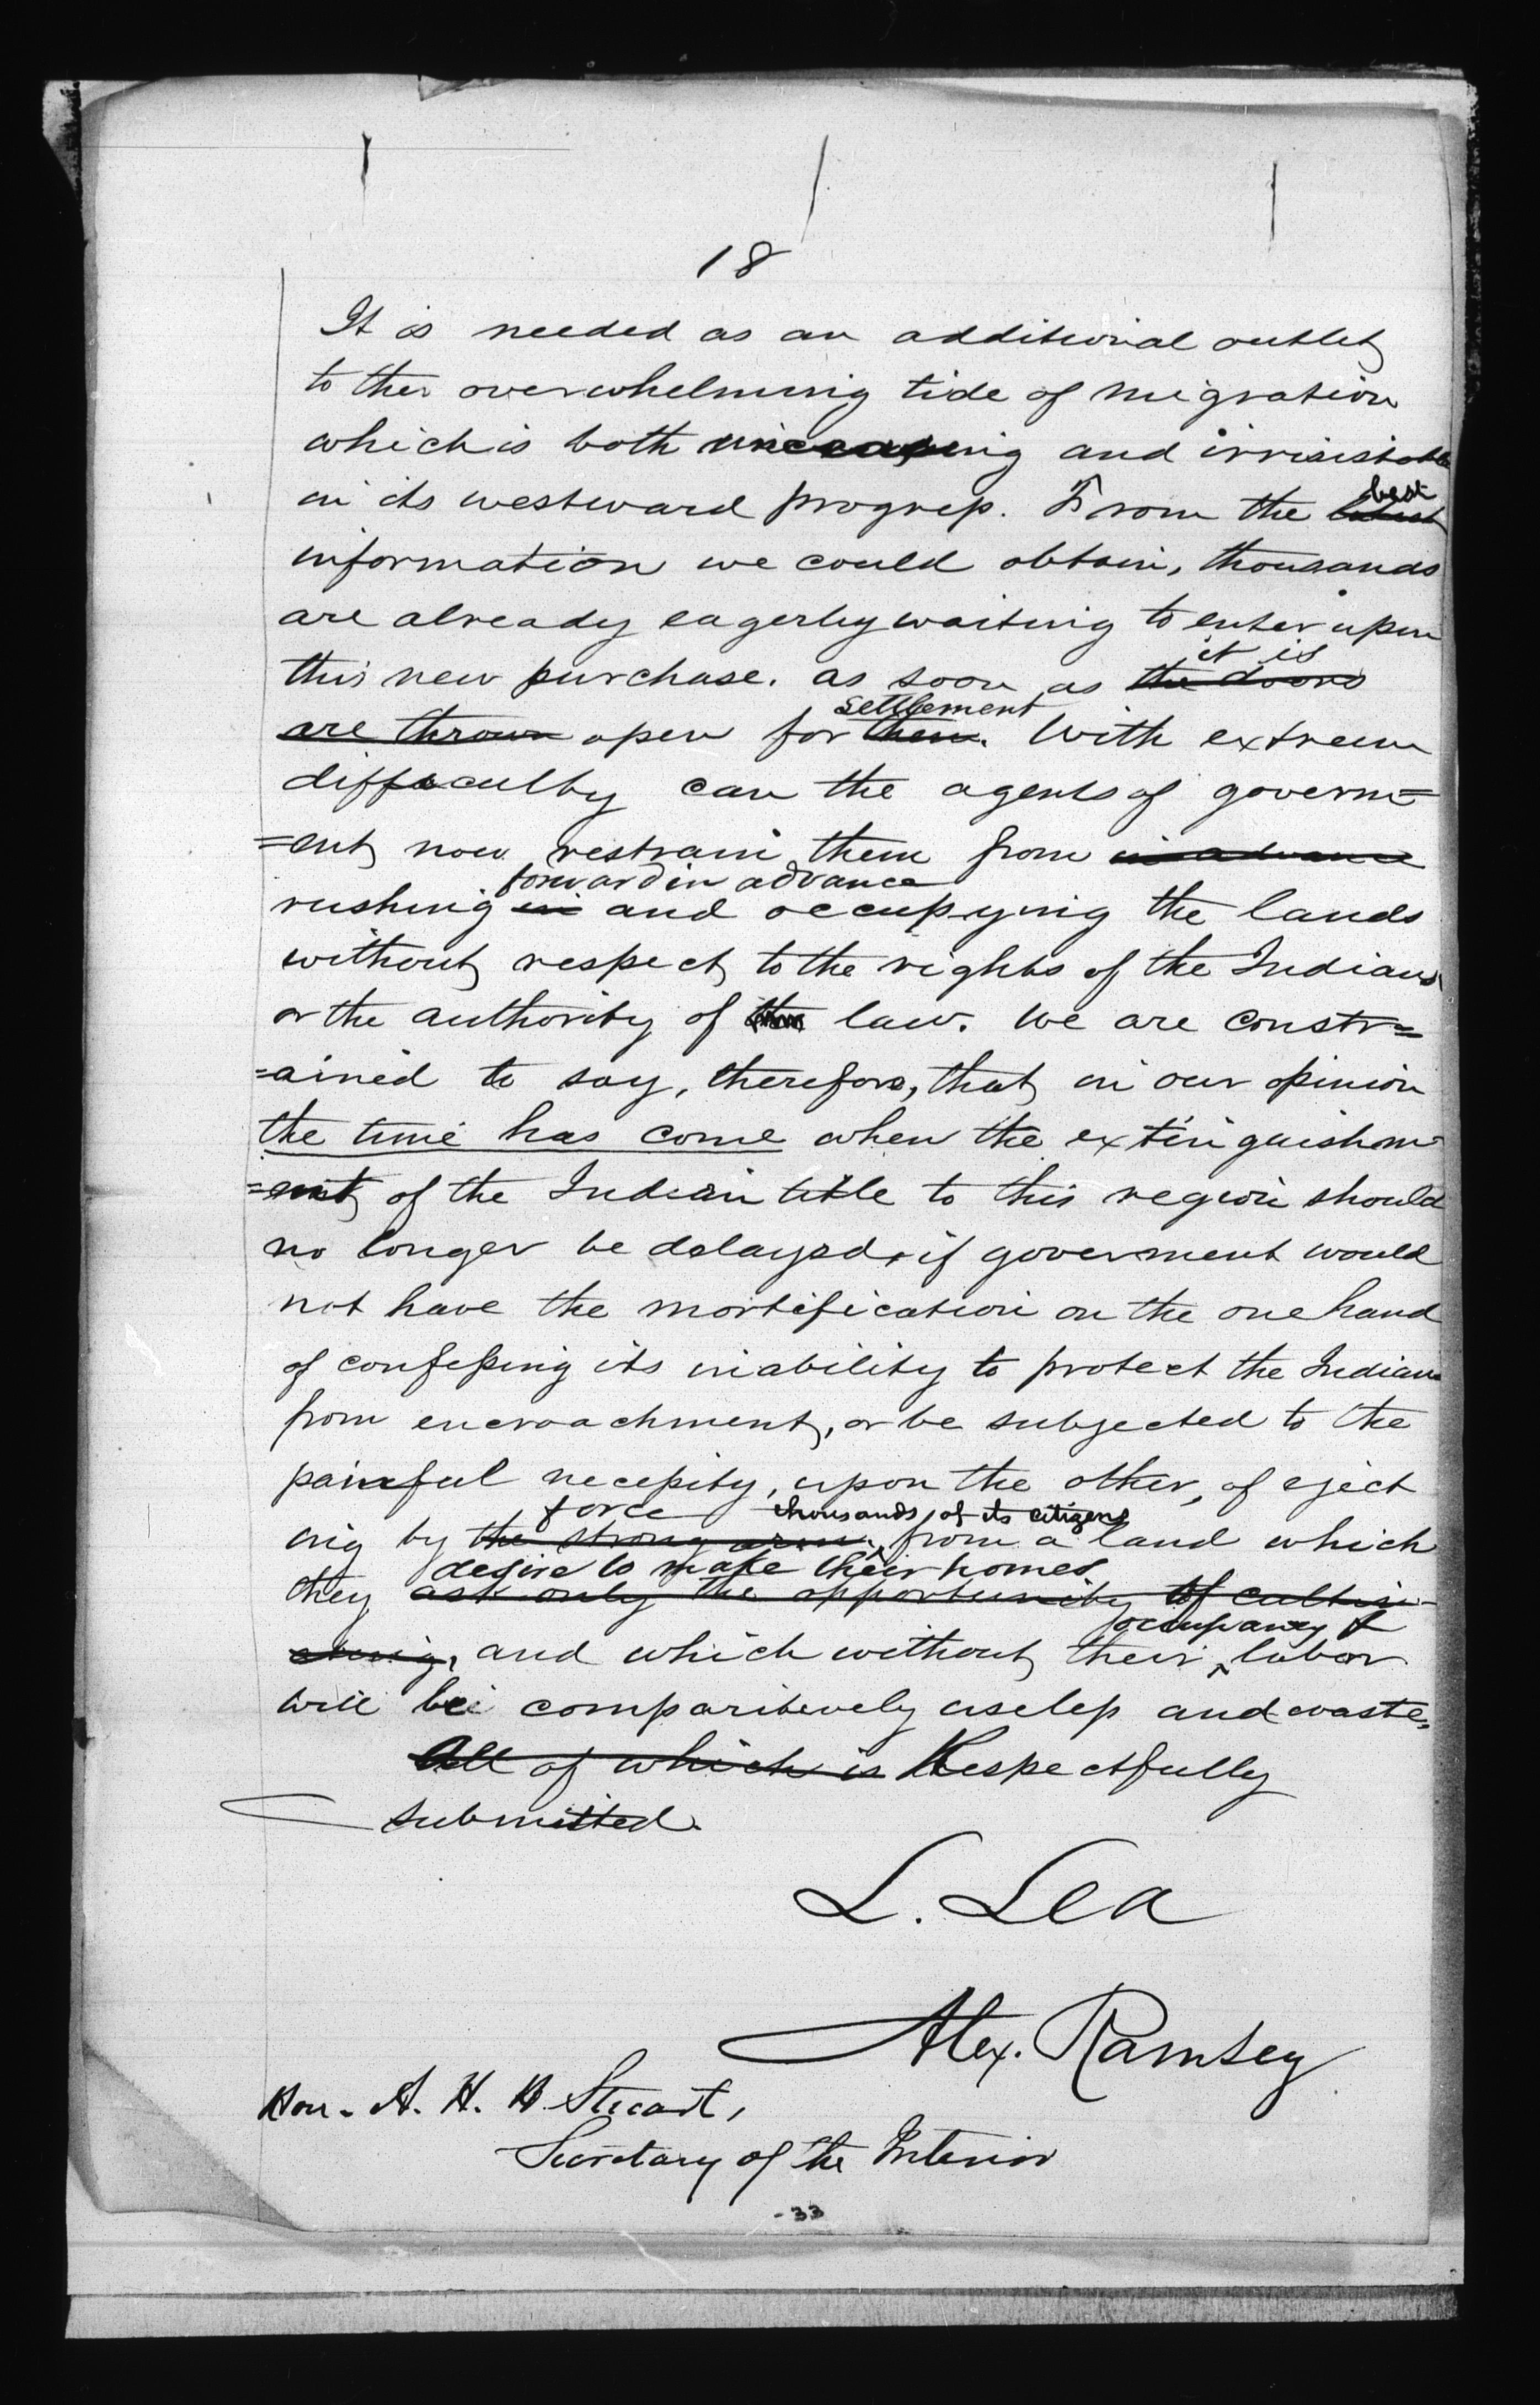 18
It is needed as an additional outlet
to the overwhelming tide of migration
which is both increasing and irrisistable
in its westward progress. From the best
information we could obtain, thousands
are already eagerly waiting to enter upon
it is
this new purchase. as soon as the doors
settlement
are thrown open for them. With extreme
difficulty can the agents of governm=
=ent now restrain them from in advance
forward in advance
rushing in and occupying the lands
without respect to the rights of the Indians
or the authority of law. We are constr=
=ained to say, therefore, that in our opinion
the time has come when the extinguishm
=ent of the Indian title to this region should
no longer be delayed, if goverment would
not have the mortification on the one hand
of confessing its inability to protect the Indians
from encroachment, or be subjected to the
painful necessity, upon the other, of eject
force thousands of its citizens
ing by the strong arm, from a land which
desire to make their homes
they ask only the opportunity of cultiv-
occupancy &
ating, and which without their labor
will be comparitively useless and waste.
All of which is Respectfully
submitted.
L. Lea
Alex. Ramsey
Hon. A. H. H. Stuart,
Secretary of the Interior
-33